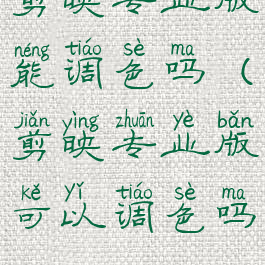 剪映专业版
néng tiáo sè ma
能调色吗（
jiǎn yìng zhuān yè bǎn
剪映专业版
kě yǐ tiáo sè ma
可以调色吗